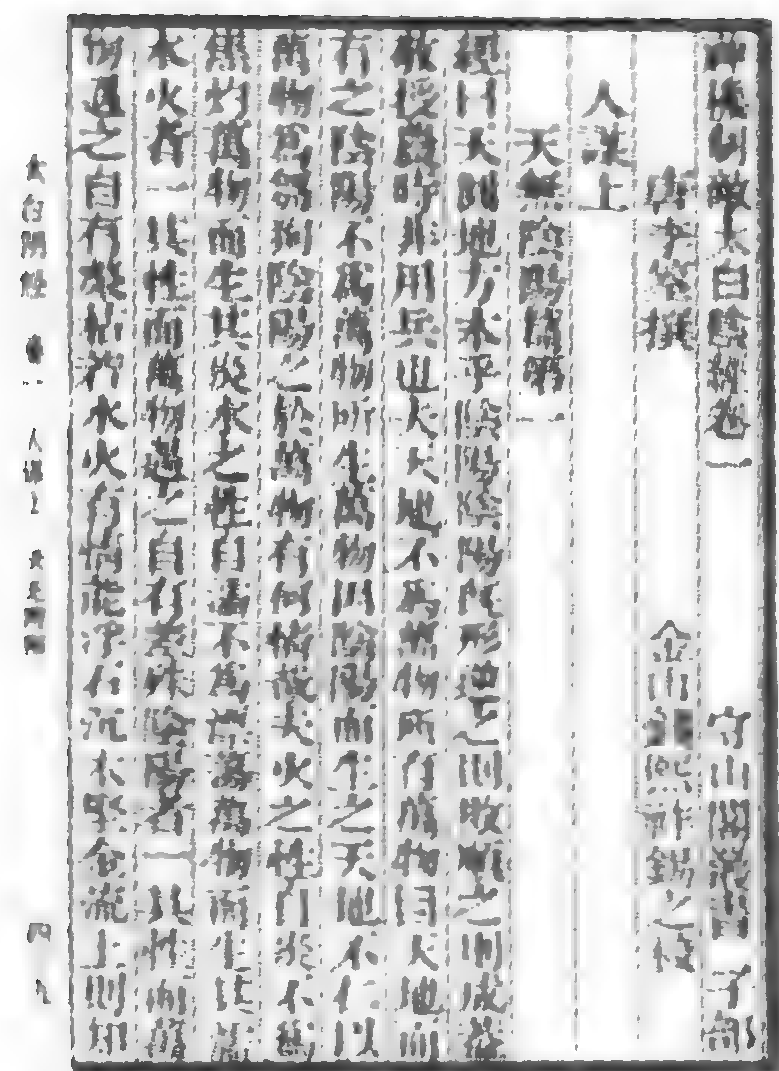 神機制敵太白陰經卷一 守山閣叢書 子部
唐李筌撰 金山錢熙祚錫之校
人謀上
天無陰陽篇一
經曰天圓地方本乎陰陽陰陽既形逆之則敗順之則成蓋
敬授農時非用兵也夫天地不為萬物所有萬物因天地而
有之陰陽不為萬物所生萬物因陰陽而生之天地不仁以
萬物為芻狗陰陽之於萬物有何情哉夫火之性自炎不為
焦灼萬物而生其炎水之性自濡不為漂蕩萬物而生其濡
水火者一其性而萬物遇之自有差殊陰陽者一其性而萬
物遇之自有榮枯若水火有情能浮石沉木堅金流土則知
太白陰經 卷一 人謀上 守山閣